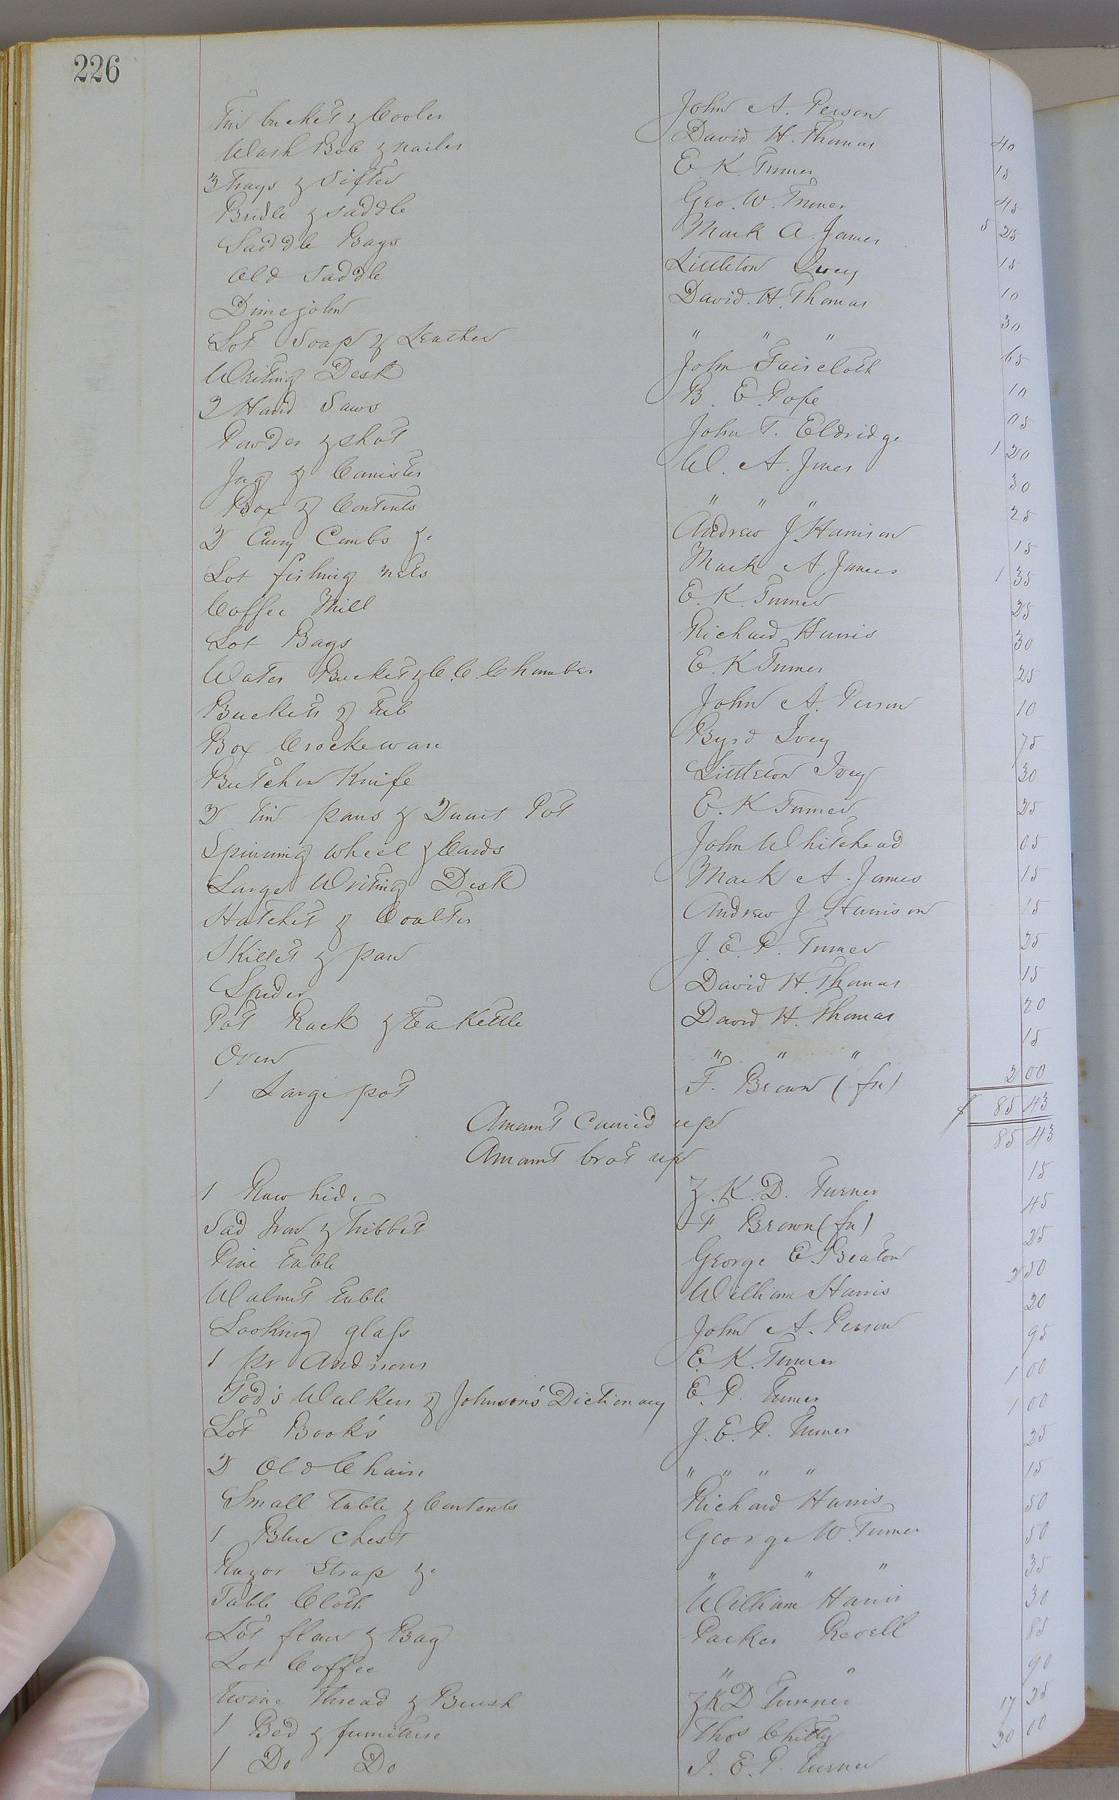 226
Tin bucket & Cooler John A. Person 40
Wash Bole & nailes David H. Thomas 15
3 Trays & Sifter E K Turner 45
Bridle & saddle Geo. W. Turner 5 25
Saddle Bags Mark A. James 15
Old Saddle Littleton Ivey 10
Dimejohn David. H. Thomas 30
Lot Soap & Leather " " " 65
Writing Desk John Faircloth 10
2 Hand Saws B. E. Pope 05
Powder & shot John T. Eldridge 1 20
Jug & Canister W. A. Jones 30
Box & Contents " " " 25
2 Curry Combs &c Andrew J. Harrison 15
Lot fishing nets Mark A James 1 35
Coffee Mill E. K. Turner 25
Lot Bags Richard Harris 30
Water Bucket & C. C. Chamber E. K Turner 25
Buckets & Tub John A. Person 10
Box Crockeware Byrd Ivey 75
Butcher Knife Littleton Ivey 30
2 Tin pans & Quart Pot E. K Turner 25
Spinning wheel & Cards John Whitehead 05
Large Writing Desk Mark A. James 15
Hatchet & Coalter Andrew J Harrison 15
Skillet & pan J. E. P. Turner 25
Spider David H. Thomas 15
Pot Rack & Tea Kettle David H. Thomas 20
Oven " " " 15
1 Large pot F. Brown (fn) 2 00
Amount carried up $ 85 43
Amount brot up 85 43
1 Raw hide Z. K. D. Turner 15
Sad Iron & Tribbet F Brown (fn) 45
Pine table George E. Beaton 25
Walnut table William Harris 2 50
Looking glass John A. Person 20
1 pr Andirons E. K. Turner 95
Tod's Walkers & Johnson's Dictionary E. P. Turner 1 00
Lot Books J. E. P. Turner 1 00
2 Old Chairs " " " " 25
Small table & Contents Richard Harris 15
1 Blue chest George W. Turner 50
Razor Strap &c " " " 50
Table Cloth William Harris 35
Lot flour & Bag Parker Revell 30
Lot Coffee " " 85
Twine Thread & Brush Z K D Turner 90
1 Bed & furniture Thos Chitty 17 25
1 Do Do J. E. P. Turner 20 00